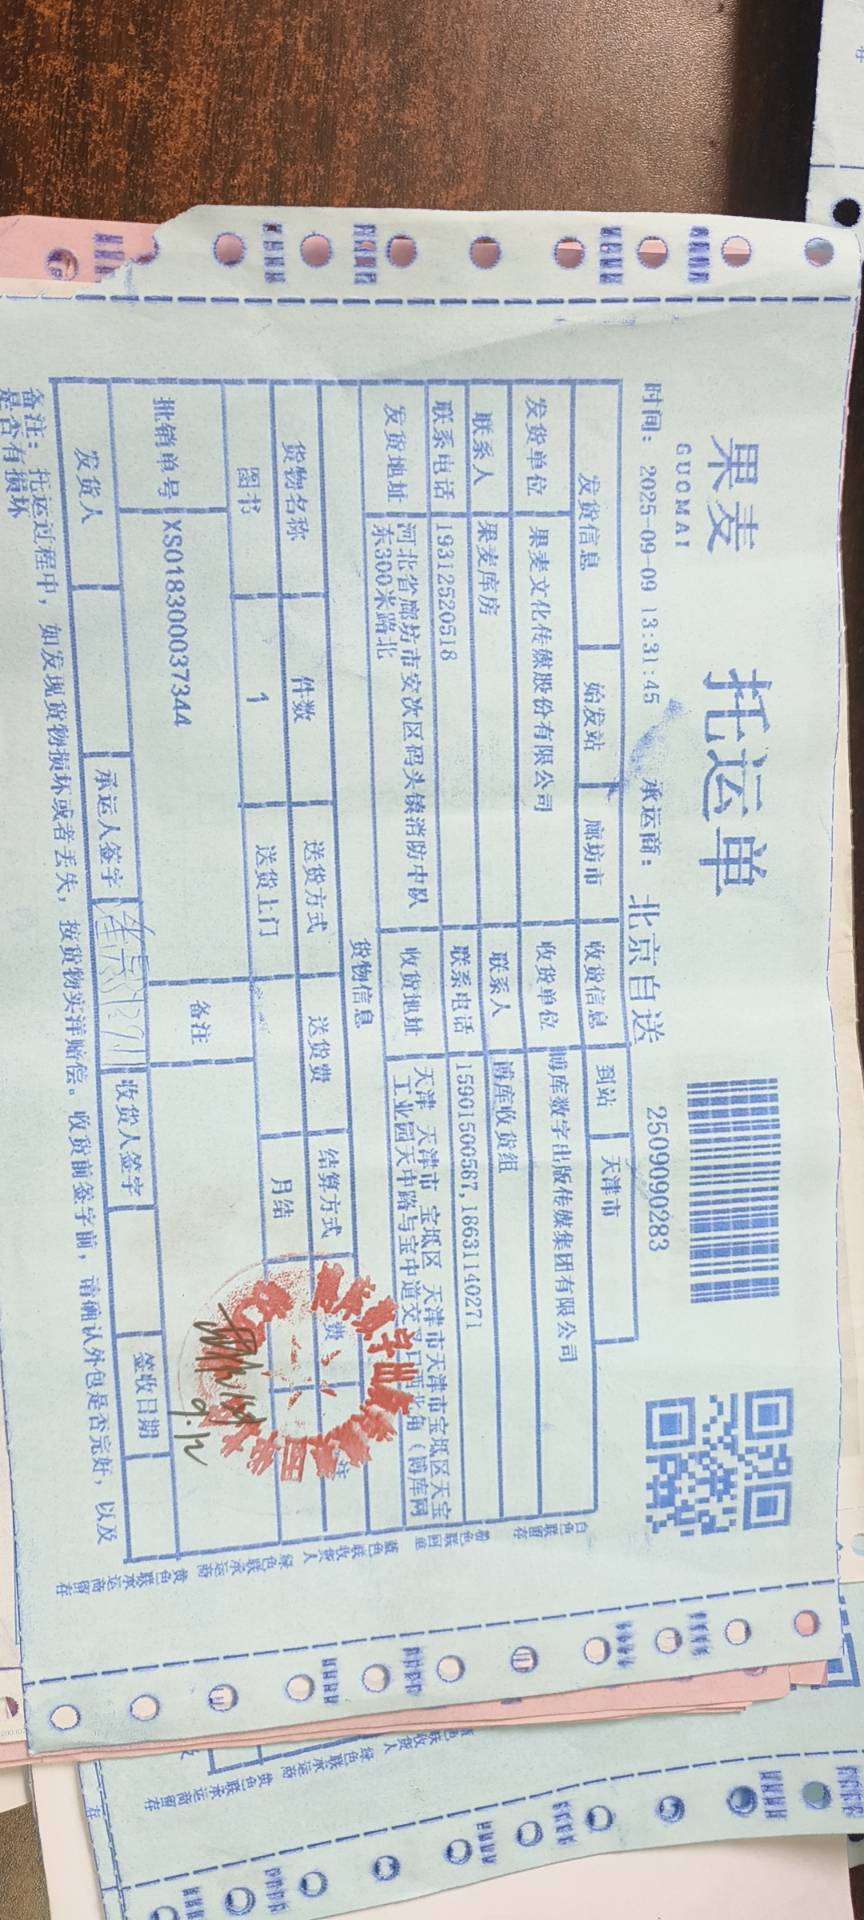 果麦
GUOMAI
托运单
时间: 2025-09-09 13:31:45 承运商: 北京自送 2509090283
发货信息 始发站 廊坊市 收货信息 到站 天津市
发货单位 果麦文化传媒股份有限公司 收货单位 博库数字出版传媒集团有限公司
联系人 果麦库房 联系人 博库收货组
联系电话 19312520518 联系电话 15901500587,18631140271
发货地址 河北省廊坊市安次区码头镇消防中队东300米路北 收货地址 天津 天津市 宝坻区 天津市天津市宝坻区天宝工业园天中路与宝中道交 口西北角(博库网
货物信息
货物名称 件数 送货方式 送货费 结算方式 费 注
图书 1 送货上门 月结
批销单号 XS018300037344 备注
发货人 承运人签字 收货人签字 签收日期
9.12
备注: 托运过程中, 如发现货物损坏或者丢失, 按货物实洋赔偿。收货前签字前, 请确认外包是否完好, 以及
是否有损坏
白色联留存
粉色联回重
蓝色联收货人
绿色联承运商
黄色联承运商留存